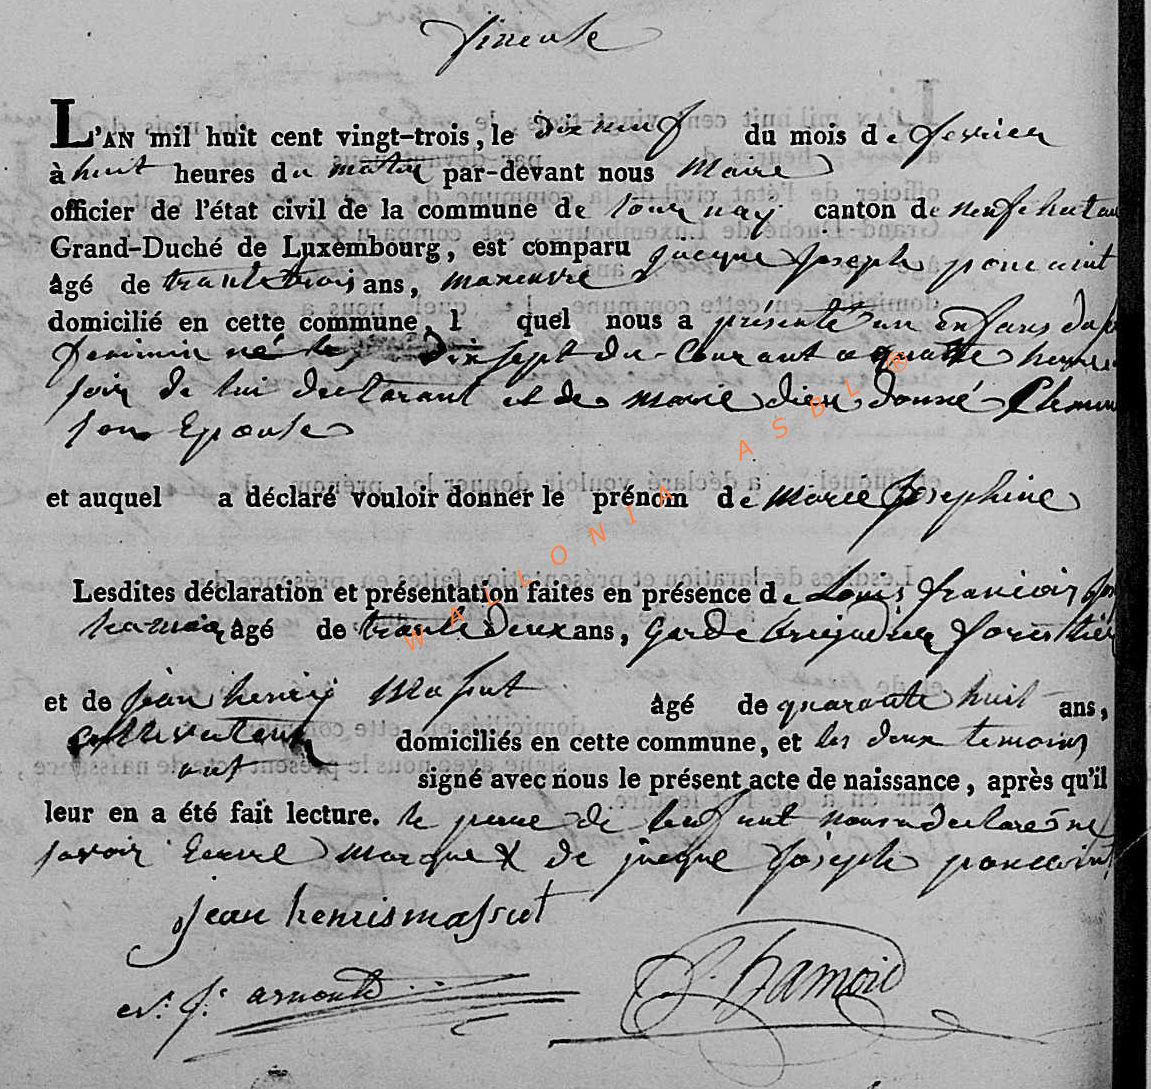 L'AN mil huit cent vingt-trois, le dix neuf du mois de fevrier
à huit heures du matin par-devant nous Maire
officier de l'état civil de la commune de tournay canton de neufchateau
Grand-Duché de Luxembourg, est comparu jacque joseph poncint
âgé de trente trois ans, maneuvre
domicilié en cette commune, l quel nous a présenté un enfans du
feminin né le dix sept du Courant a quatre heures
soir de lui declarant et de marie dieu donné
son Epouse
et auquel a déclaré vouloir donner le prénom de Marie Josephine
Lesdites déclaration et présentation faites en présence de Louis francois
hamoir âgé de trente deux ans, garde forestier
et de jean henry Massut âgé de quarante huit ans,
cultivateur domiciliés en cette commune, et les deux temoins
ont signé avec nous le présent acte de naissance, après qu'il
leur en a été fait lecture. le pere de lenfant nous a declare ne
savoir Ecrire marque X de jacque joseph poncint
jean henris massut
arnould
hamoir
WALLONIA ASBL ®